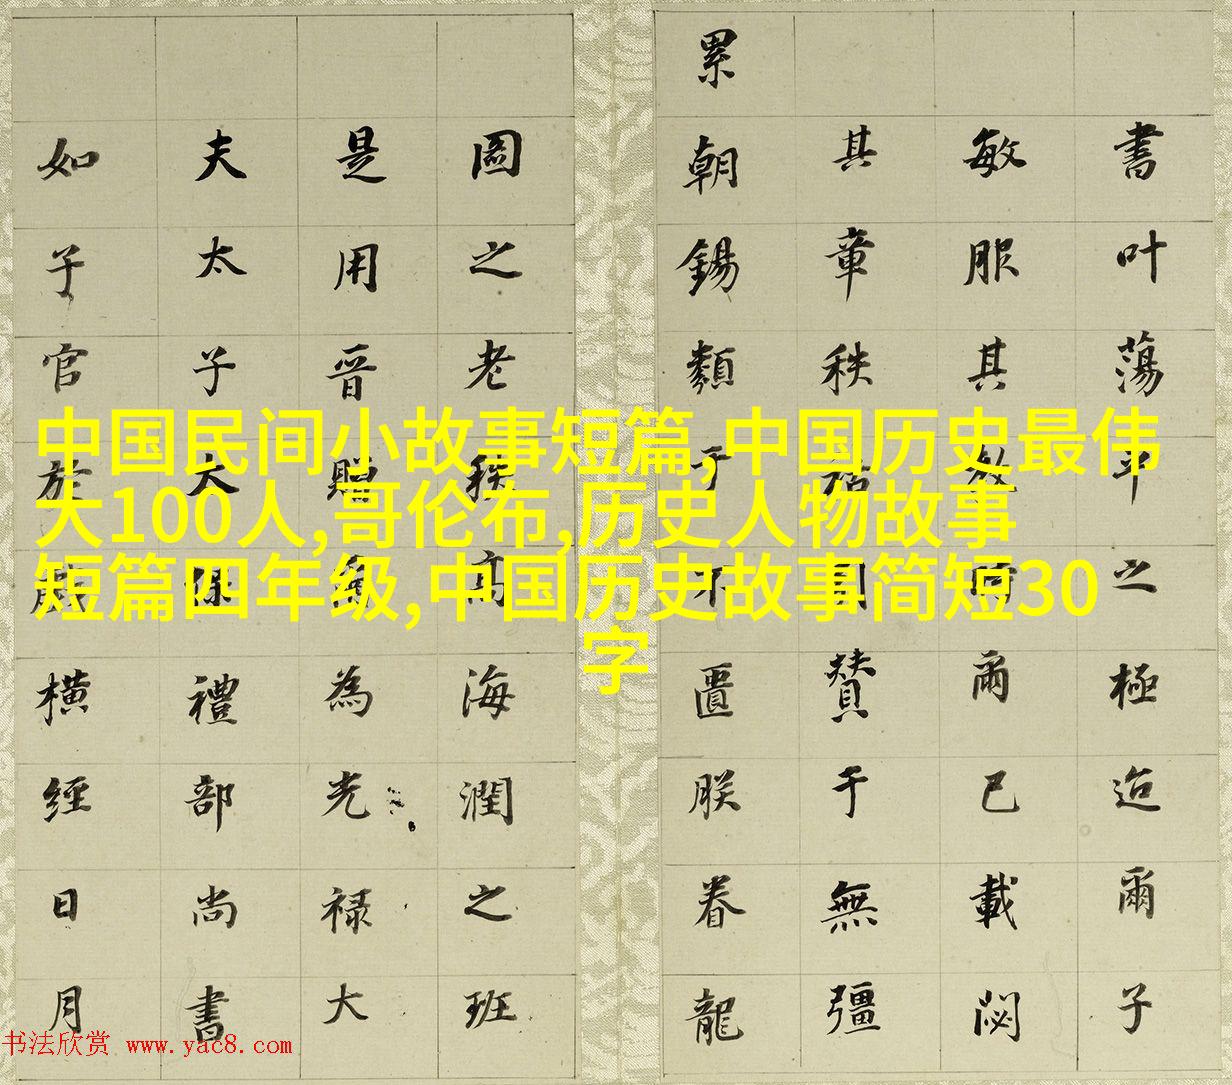 書叶蕩平之極迨爾子
敏服其爾已載閟
其章秩贊于無彊
累朝錫類于不匱朕眷龍
圖之老秩高海潤之班
是用晉贈為光祿大
夫太子太保禮部尚書
如子官於戲橫經日月
中国民间小故事短篇,中国历史最伟
大100人,哥伦布,历史人物故事
短篇四年级,中国历史故事简短30
字
书法欣赏 www.yac8.com